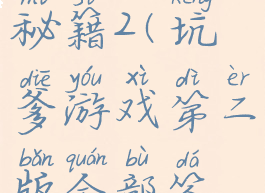 秘籍2(坑
diē yóu xì dì èr
爹游戏第二
bǎn quán bù dá
版全部答